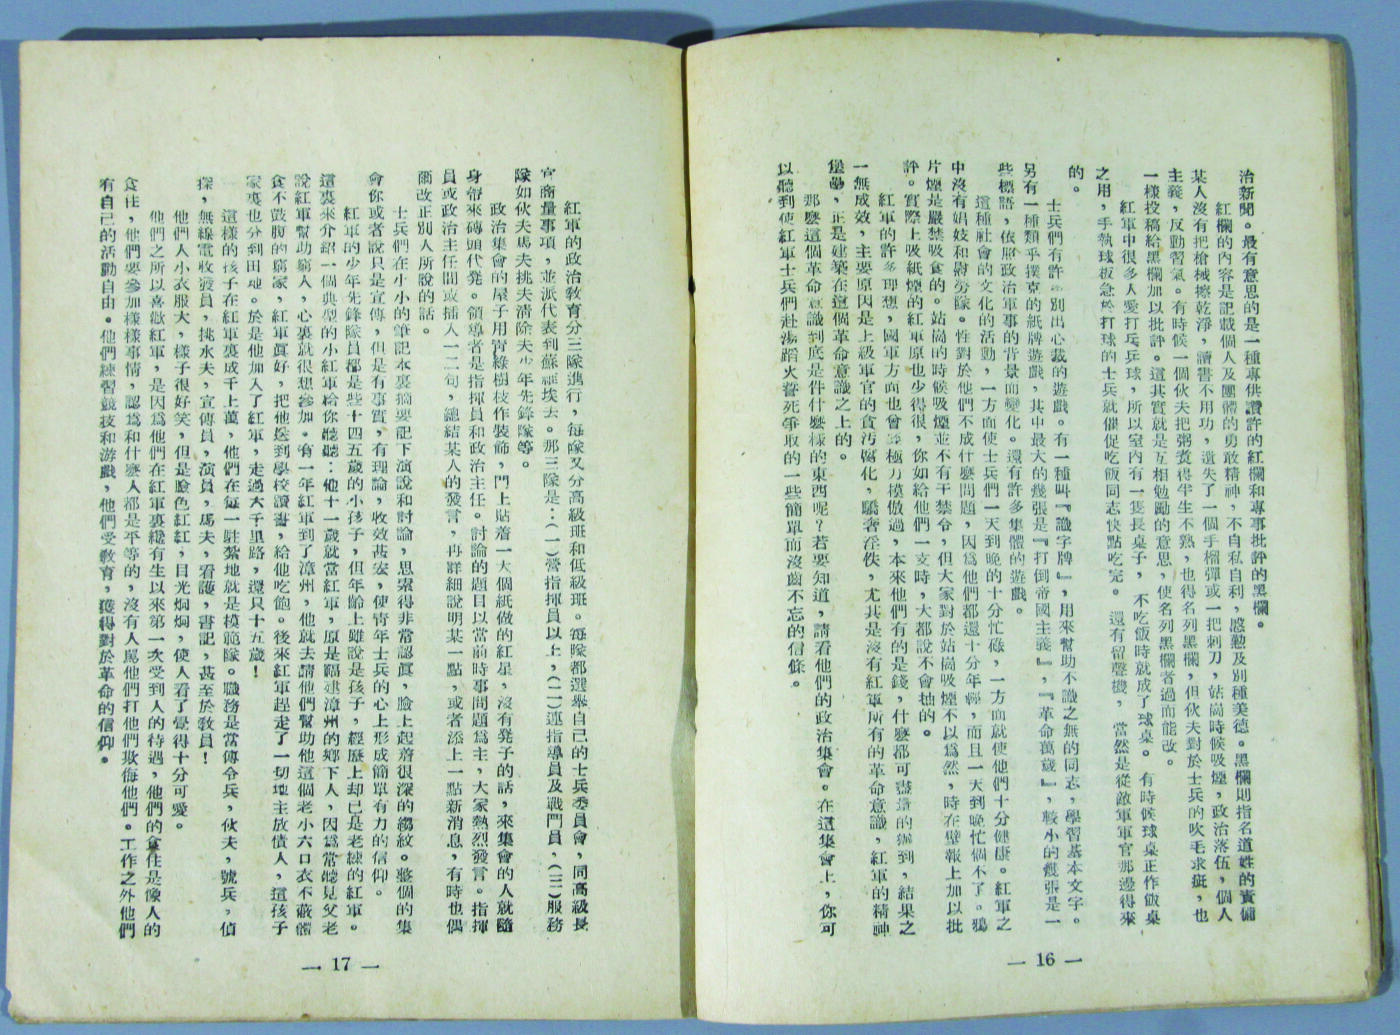 治新聞。最有意思的是一種專供讚許的紅欄和專事批評的黑欄。
紅欄的內容是記載個人及團體的勇敢精神，不自私自利，感勤及別種美德。黑欄則指名道姓的責備
某人沒有把槍械擦乾淨，讀書不用功，遺失了一個手榴彈或一把刺刀，站崗時候吸煙，政治落伍，個人
主義，反動習氣。有時候一個伙夫把粥煑得半生不熟，也得名列黑欄，但伙夫對於士兵的吹毛求疵，也
一樣投稿給黑欄加以批評。這其實就是互相勉勵的意思，使名列黑欄者過而能改。
紅軍中很多人愛打乓乓球，所以室內有一隻長桌子，不吃飯時就成了球桌。有時候球桌正作飯桌
之用，手執球板急於打球的士兵就催促吃飯同志快點吃完。還有留聲機，當然是從敵軍軍官那邊得來
的。
士兵們有許多別出心裁的遊戲。有一種叫『識字牌』，用來幫助不識之無的同志，學習基本文字。
另有一種類乎撲克的紙牌遊戲，其中最大的幾張是『打倒帝國主義』，『革命萬歲』，較小的幾張是一
些標語，依照政治軍事的背景而變化。還有許多集體的遊戲。
這種社會的文化的活動，一方面使士兵們一天到晚的十分忙碌，一方面就使他們十分健康。紅軍之
中沒有娼妓和慰勞隊。性對於他們不成什麼問題，因為他們都還十分年輕，而且一天到晚忙個不了。鴉
片煙是嚴禁吸食的。站崗的時候吸煙並不有干禁令，但大家對於站崗吸煙不以爲然，時在壁報上加以批
評。實際上吸紙煙的紅軍原也少得很，你如給他們一支時，大都說不會抽的。
紅軍的許多理想，國軍方面也曾極力模倣過，本來他們有的是錢，什麼都可盡量的辦到，結果之
一無成效，主要原因是上級軍官的貪汚腐化，驕奢淫佚，尤其是沒有紅軍所有的革命意識，紅軍的精神
堡壘，正是建築在這個革命意識之上的。
那麼這個革命意識到底是件什麼樣的東西呢？若要知道，請看他們的政治集會。在這集會上，你可
以聽到使紅軍士兵們赴湯蹈火誓死爭取的一些簡單而沒齒不忘的信條。
— 16 —
紅軍的政治教育分三隊進行，每隊又分高級班和低級班。每隊都選舉自己的士兵委員會，同高級長
官商量事項，並派代表到蘇維埃去。那三隊是：（一）營指揮員以上，（二）連指導員及戰鬥員，（三）服務
隊如伙夫馬夫挑夫清除夫少年先鋒隊等。
政治集會的屋子用宵綠樹枝作裝飾，門上貼着一大個紙做的紅星，沒有凳子的話，來集會的人就隨
身帶來磚頭代凳。領導者是指揮員和政治主任。討論的題目以當前時事問題爲主，大家熱烈發言。指揮
員或政治主任間或插入一二句，總結某人的發言，再詳細說明某一點，或者添上一點新消息，有時也偶
爾改正別人所說的話。
士兵們在小小的筆記本裏摘要記下演說和討論，思索得非常認眞，臉上起着很深的縐紋。整個的集
會你或者說只是宣傳，但是有事實，有理論，收效甚宏，使青年士兵的心上形成簡單有力的信仰。
紅軍的少年先鋒隊員都是些十四五歲的小孩子，但年齡上雖說是孩子，經歷上却已是老練的紅軍。
這裏來介紹一個典型的小紅軍給你聽聽：他十一歲就當紅軍，原是福建漳州的鄉下人，因爲常聽見父老
說紅軍幫助窮人，心裏就很想參加。有一年紅軍到了漳州，他就去請他們幫助他這個老小六口衣不蔽體
食不飽腹的窮家，紅軍眞好，把他送到學校讀書，給他吃飽。後來紅軍趕走了一切地主放債人，這孩子
家裏也分到田地。於是他加入了紅軍，走過六千里路，還只十五歲！
這樣的孩子在紅軍裏成千上萬，他們在每一駐紮地就是模範隊。職務是當傳令兵，伙夫，號兵，偵
探，無線電收發員，挑水夫，宣傳員，演員，馬夫，看護，書記，甚至於敎員！
他們人小衣服大，樣子很好笑，但是臉色紅紅，目光烱烱，使人看了覺得十分可愛。
他們之所以喜歡紅軍，是因爲他們在紅軍裏纔有生以來第一次受到人的待遇，他們的食住是像人的
食住，他們要參加樣樣事情，認爲和什麼人都是平等的，沒有人罵他們打他們欺侮他們。工作之外他們
有自己的活動自由。他們練習競技和游戲，他們受敎育，獲得對於革命的信仰。
— 17 —